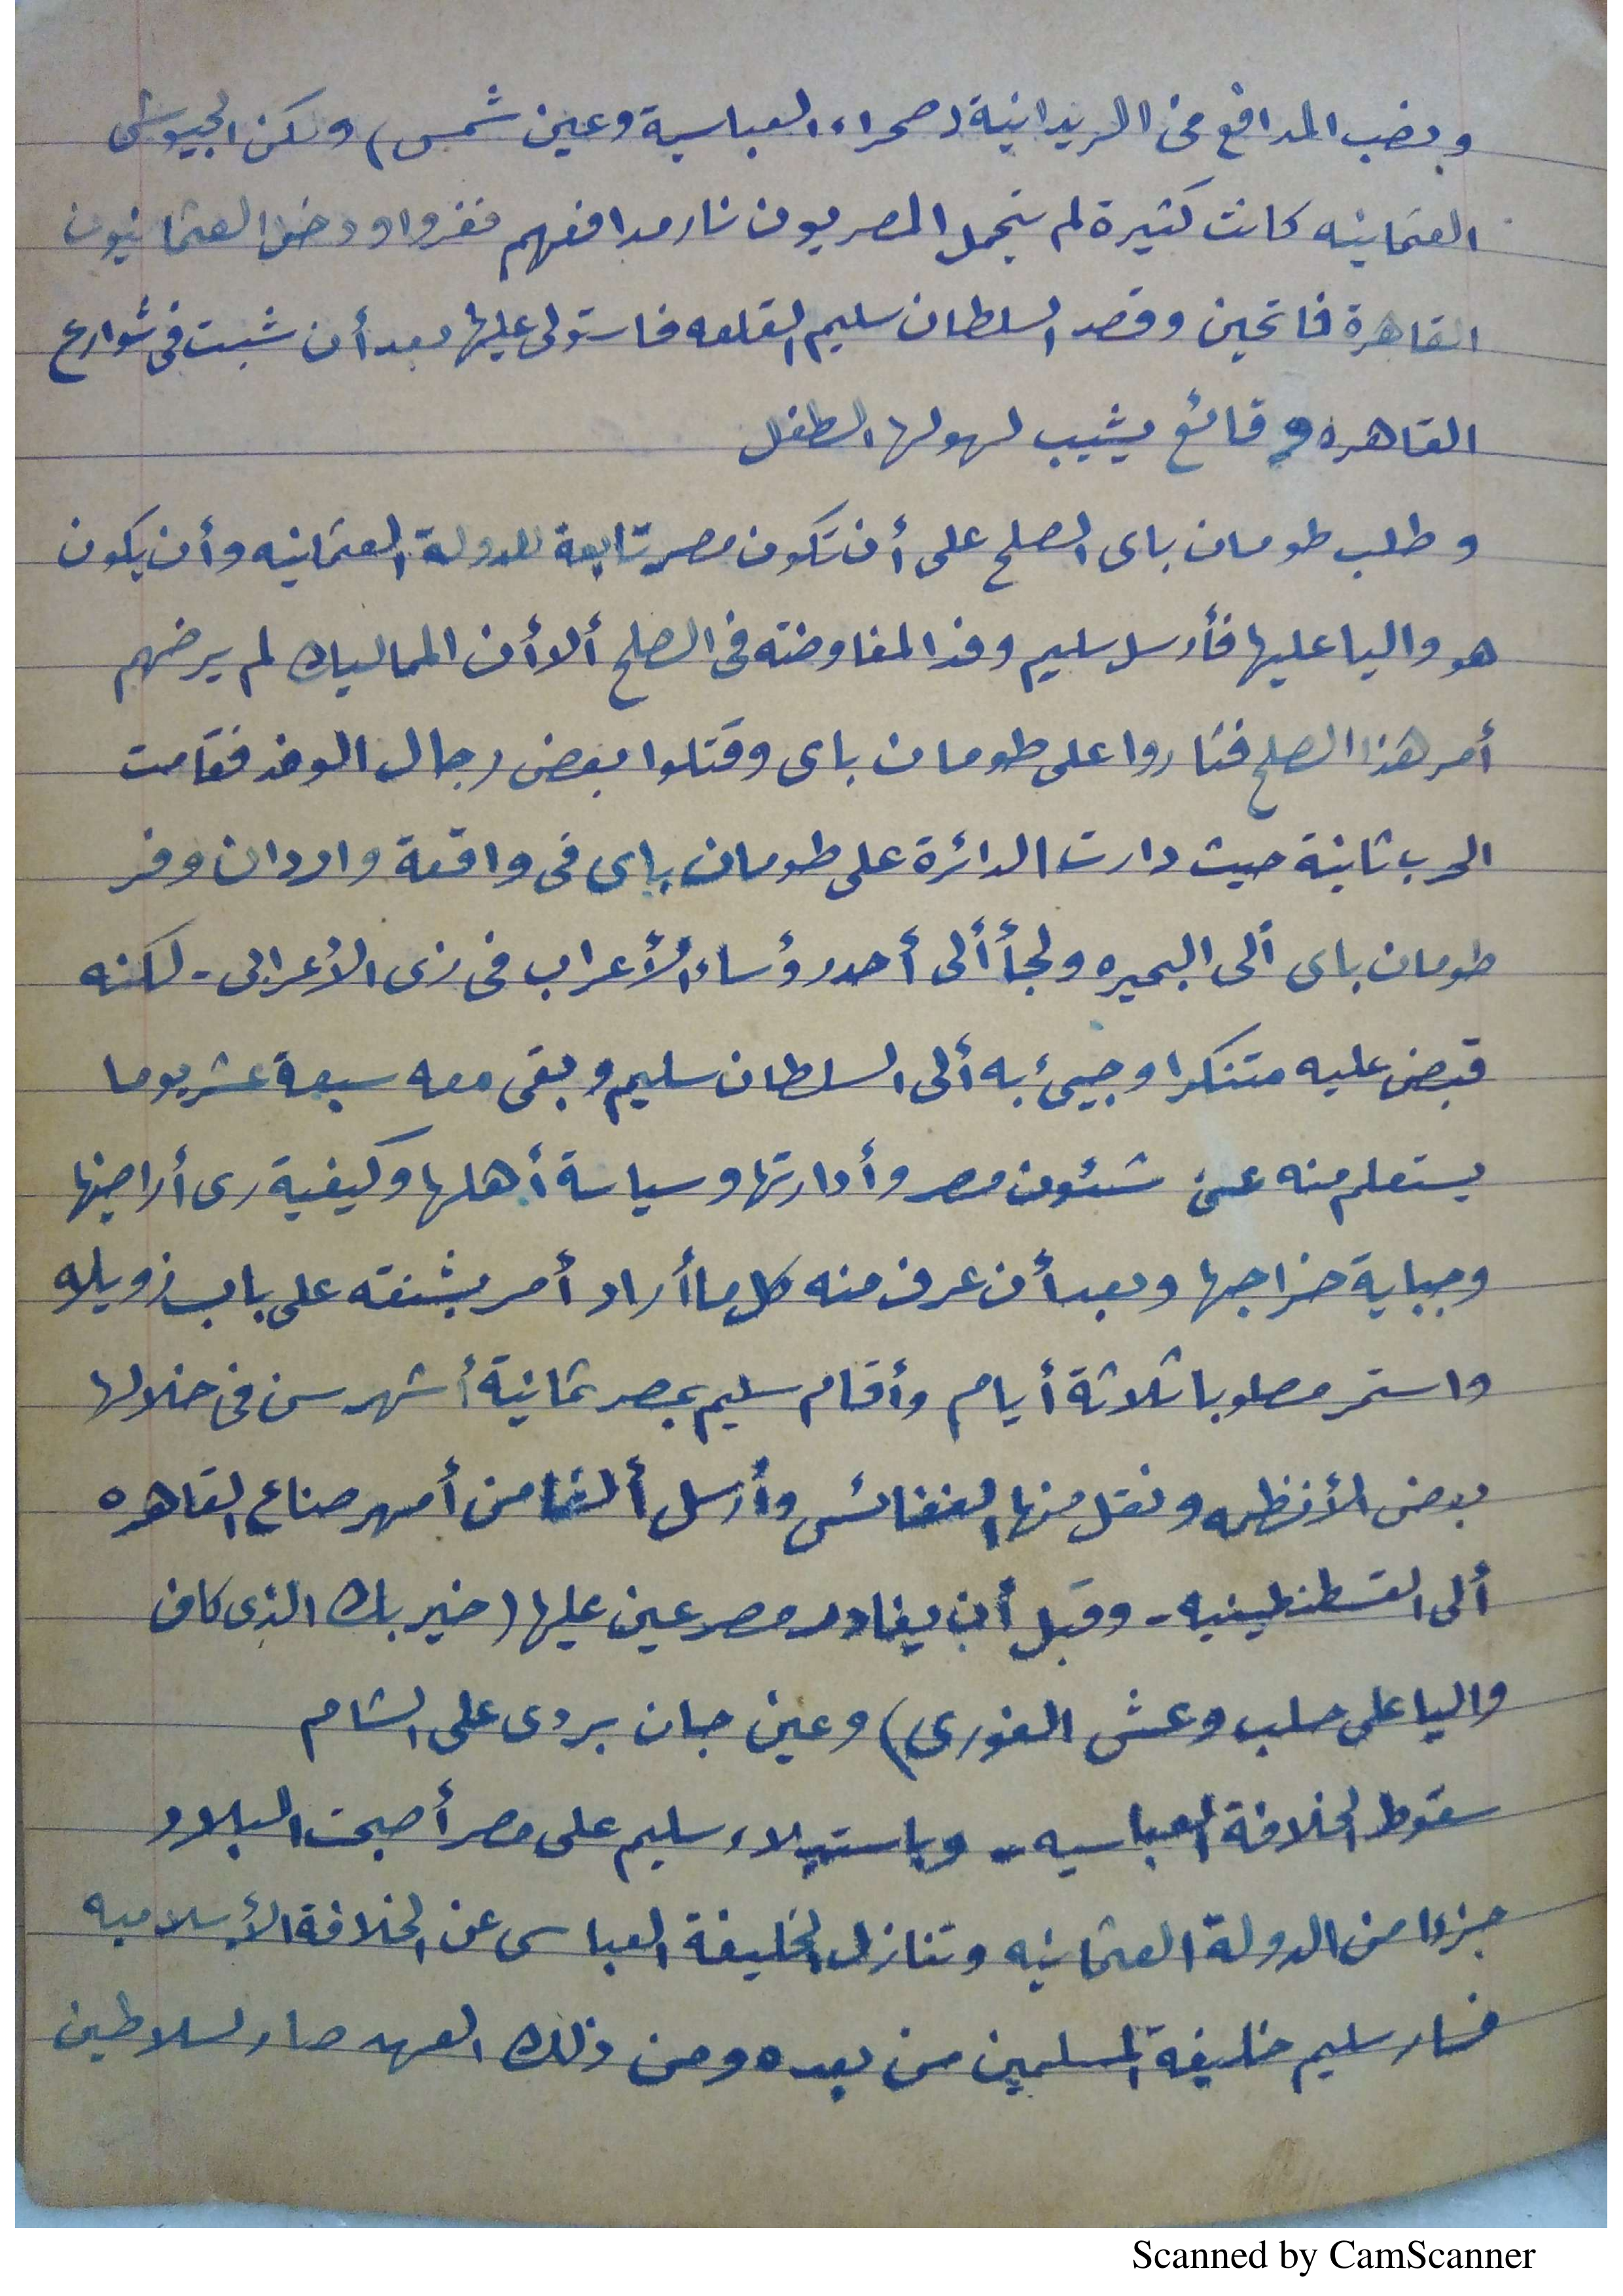 ونصب المدافع فى الريدانية (صحراء العباسية وعين شمس) ولكن الجيوش
العثمانيه كانت كثيرة لم يتحمل المصريون نار مدافعهم ففروا ودخل العثمانيون
القاهرة فاتحين وقصد السلطان سليم القلعه فاستولى عليها بعد أن شبت فى شوارع
القاهره وقائع يشيب لهولها الطفل
وطلب طومان باى الصلح على أن تكون مصر تابعة للدولة العثمانيه وأن يكون
هو واليا عليها فأرسل سليم وفدا لمفاوضته فى الصلح ألا أن المماليك لم يرضهم
أمر هذا الصلح فثاروا على طومان باى وقتلوا بعض رجال الوفد فقامت
الحرب ثانية حيث دارت الدائرة على طومان باى فى واقعة واردان وفر
طومان باى ألى البحيره ولجأ ألى أحد رؤساء الأعراب فى زى الأعرابى - لكنه
قبض عليه متنكرا وجيئ به ألى السلطان سليم وبقى معه سبعة عشر يوما
يستعلم منه عن شئون مصر وأدارتها وسياسة أهلها وكيفية رى أراضيها
وجباية خراجها وبعد أن عرف منه كل ما أراد أمر بشنقه على باب زويله
واستمر مصلوبا ثلاثة أيام وأقام سليم بمصر ثمانية أشهر سن فى خلالها
بعض الأنظمه ونقل منها النفائس وأرسل ألفا من أمهر صناع القاهره
ألى القسطنطينيه - وقبل أن يغادر مصر عين عليها (خير بك الذى كان
واليا على حلب وغش الغورى) وعين جان بردى على الشام
سقوط الخلافة العباسيه - وباستيلاء سليم على مصر أصبحت البلاد
جزءا من الدولة العثمانيه وتنازل الخليفة العباسى عن الخلافة الأسلاميه
فسار سليم خليفة المسلمين من بعده ومن ذلك العهد صار لسلاطين
Scanned by CamScanner